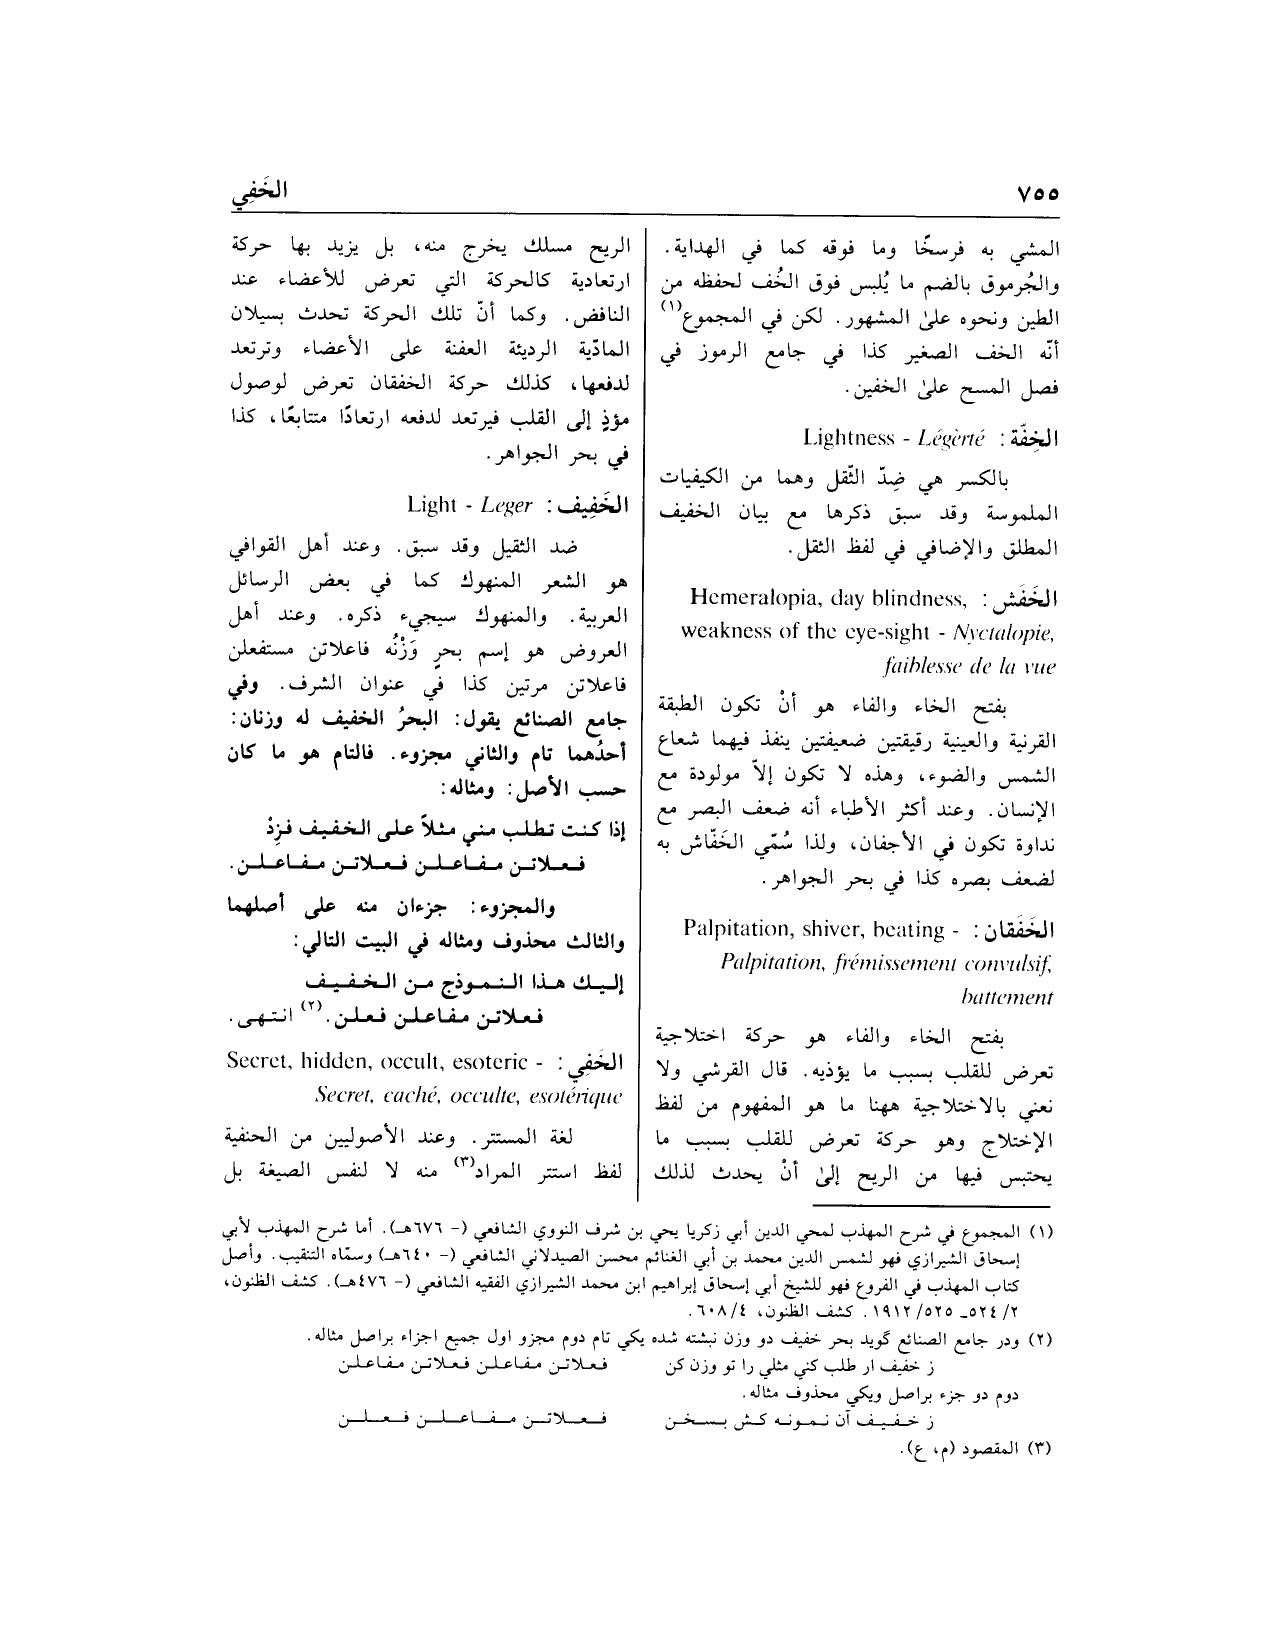 ٧٥٥
الخَفِي
المشي به فرسخًا وما فوقه كما في الهداية.
والجُرموق بالضم ما يُلبس فوق الخُف لحفظه من
الطين ونحوه علىٰ المشهور. لكن في المجموع(١)
أنّه الخف الصغير كذا في جامع الرموز في
فصل المسح علىٰ الخفين.
الخِفّة : Lightness - Légèrté
بالكسر هي ضِدّ الثّقل وهما من الكيفيات
الملموسة وقد سبق ذكرها مع بيان الخفيف
المطلق والإضافي في لفظ الثقل.
الخَفَش : Hemeralopia, day blindness,
weakness of the eye-sight - Nyctalopie,
faiblesse de la vue
بفتح الخاء والفاء هو أنْ تكون الطبقة
القرنية والعينية رقيقتين ضعيفتين ينفذ فيهما شعاع
الشمس والضوء، وهذه لا تكون إلاّ مولودة مع
الإنسان. وعند أكثر الأطباء أنه ضعف البصر مع
نداوة تكون في الأجفان، ولذا سُمّي الخَفّاش به
لضعف بصره كذا في بحر الجواهر.
الخَفَقان : Palpitation, shiver, beating -
Palpitation, frémissement convulsif,
battement
بفتح الخاء والفاء هو حركة اختلاجية
تعرض للقلب بسبب ما يؤذيه. قال القرشي ولا
نعني بالاختلاجية ههنا ما هو المفهوم من لفظ
الإختلاج وهو حركة تعرض للقلب بسبب ما
يحتبس فيها من الريح إلىٰ أنْ يحدث لذلك
الريح مسلك يخرج منه، بل يزيد بها حركة
ارتعادية كالحركة التي تعرض للأعضاء عند
النافض. وكما أنّ تلك الحركة تحدث بسيلان
المادّية الرديئة العفنة على الأعضاء وترتعد
لدفعها، كذلك حركة الخفقان تعرض لوصول
مؤذٍ إلى القلب فيرتعد لدفعه ارتعادًا متتابعًا، كذا
في بحر الجواهر.
الخَفِيف : Light - Leger
ضد الثقيل وقد سبق. وعند أهل القوافي
هو الشعر المنهوك كما في بعض الرسائل
العربية. والمنهوك سيجيء ذكره. وعند أهل
العروض هو إسم بحرٍ وَزْنُه فاعلاتن مستفعلن
فاعلاتن مرتين كذا في عنوان الشرف. وفي
جامع الصنائع يقول: البحرُ الخفيف له وزنان:
أحدُهما تام والثاني مجزوء. فالتام هو ما كان
حسب الأصل: ومثاله:
إذا كنت تطلب مني مثلاً على الخفيف فزِدْ
فعلاتن مفاعلن فعلاتن مفاعلن.
والمجزوء: جزءان منه على أصلهما
والثالث محذوف ومثاله في البيت التالي:
إليك هذا النموذج من الخفيف
فعلاتن مفاعلن فعلن.(٢) انتهى.
الخَفِي : Secret, hidden, occult, esoteric -
Secret, caché, occulte, esotérique
لغة المستتر. وعند الأصوليين من الحنفية
لفظ استتر المراد(٣) منه لا لنفس الصيغة بل
(١) المجموع في شرح المهذب لمحي الدين أبي زكريا يحي بن شرف النووي الشافعي (- ٦٧٦هـ). أما شرح المهذب لأبي
إسحاق الشيرازي فهو لشمس الدين محمد بن أبي الغنائم محسن الصيدلاني الشافعي (- ٦٤٠هـ) وسمّاه التنقيب. وأصل
كتاب المهذب في الفروع فهو للشيخ أبي إسحاق إبراهيم ابن محمد الشيرازي الفقيه الشافعي (- ٤٧٦هـ). كشف الظنون،
٢/ ٥٢٤ـ ٥٢٥/ ١٩١٢. كشف الظنون، ٤/ ٦٠٨.
(٢) ودر جامع الصنائع گويد بحر خفيف دو وزن نبشته شده يكي تام دوم مجزو اول جميع اجزاء براصل مثاله.
ز خفيف ار طلب كني مثلي را تو وزن كن فعلاتن مفاعلن فعلاتن مفاعلن
دوم دو جزء براصل ويكي محذوف مثاله.
ز خفيف آن نمونه كش بسخن فعلاتن مفاعلن فعلن
(٣) المقصود (م، ع).